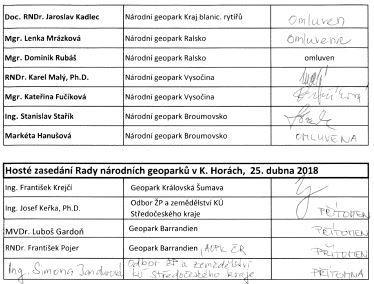 Doc. RNDr. Jaroslav Kadlec Národní geopark Kraj blanic. rytířů OMLUVEN
Mgr. Lenka Mrázková Národní geopark Ralsko OMLUVENA
Mgr. Dominik Rubáš Národní geopark Ralsko omluven
RNDr. Karel Malý, Ph.D. Národní geopark Vysočina
Mgr. Kateřina Fučíková Národní geopark Vysočina
Ing. Stanislav Stařík Národní geopark Broumovsko
Markéta Hanušová Národní geopark Broumovsko OMLUVENA
Hosté zasedání Rady národních geoparků v K. Horách, 25. dubna 2018
Ing. František Krejčí Geopark Královská Šumava
Ing. Josef Keřka, Ph.D. Odbor ŽP a zemědělství KÚ
Středočeského kraje PŘÍTOMEN
MVDr. Luboš Gardoň Geopark Barrandien PŘÍTOMEN
RNDr. František Pojer Geopark Barrandien, AOPK ČR PŘÍTOMEN
Ing. Simona Jandurová Odbor ŽP a zemědělství
KÚ Středočeského kraje PŘÍTOMNA